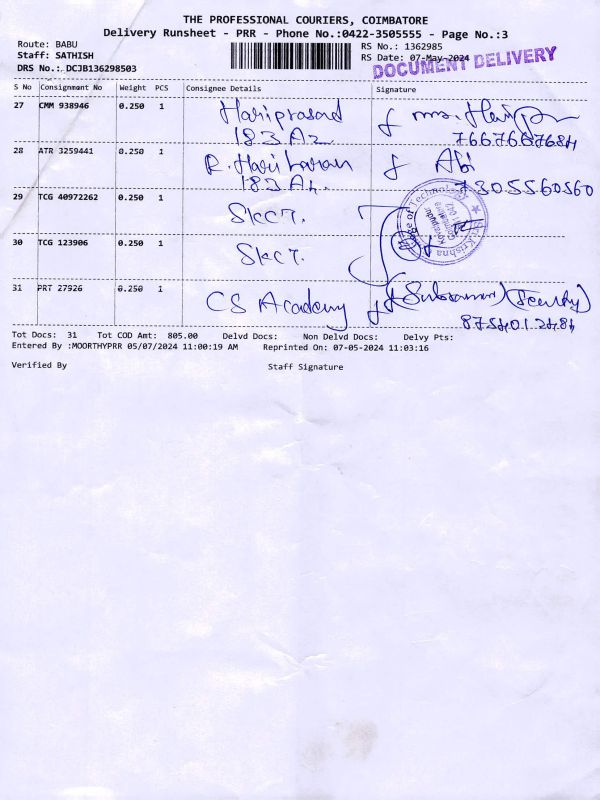 THE PROFESSIONAL COURIERS, COIMBATORE
Delivery Runsheet - PRR - Phone No.:0422-3505555 - Page No.:3
Route: BABU
Staff: SATHISH
DRS No.: DCJB136298503
RS No.: 1362985
RS Date: 07-May-2024
DOCUMENT DELIVERY
S No Consignment No Weight PCS Consignee Details Signature
27 CMM 938946 0.250 1 Hariprasad
183.A2
7667667684
28 ATR 3259441 0.250 1 R. Hariharan Abi
183.A4. 7305560560
29 TCG 40972262 0.250 1 SKCT.
Sri Krishna College of Technology
Kovaipudur
Coimbatore
30 TCG 123906 0.250 1 SKCT.
31 PRT 27926 0.250 1 CS Academy
8754012484
Tot Docs: 31 Tot COD Amt: 805.00 Delvd Docs: Non Delvd Docs: Delvy Pts:
Entered By :MOORTHYPRR 05/07/2024 11:00:19 AM Reprinted On: 07-05-2024 11:03:16
Verified By Staff Signature